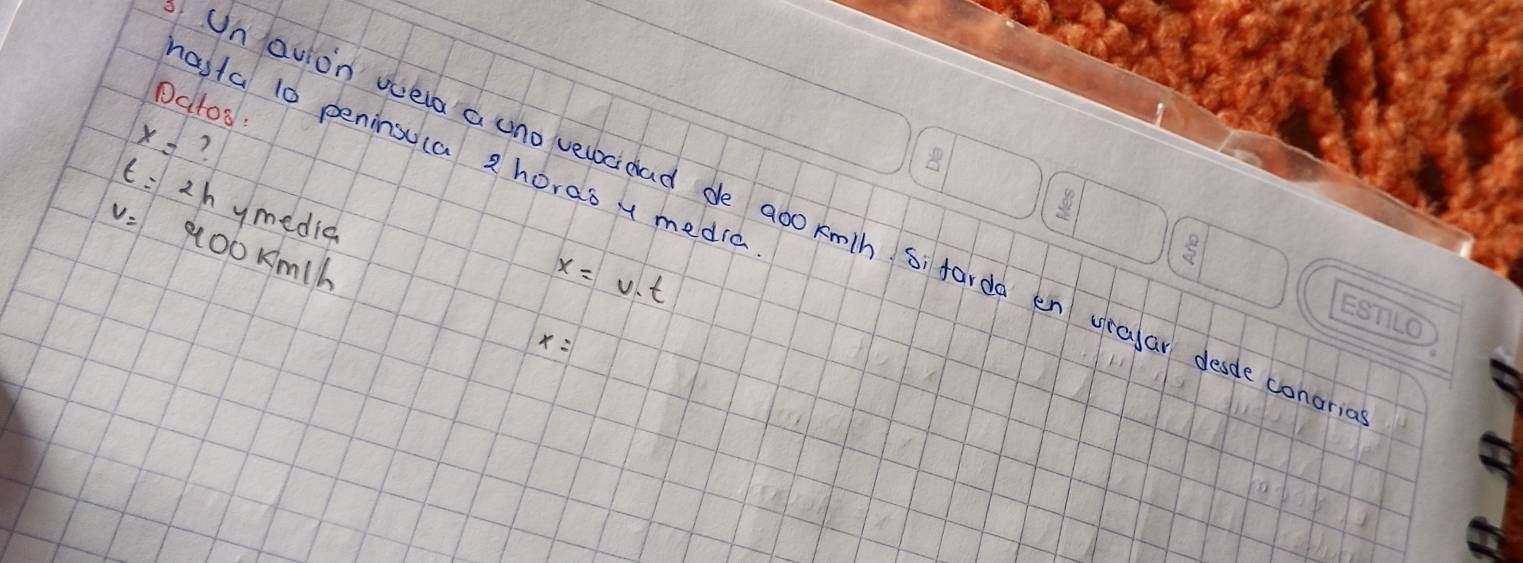 3. Un avión vuela a una velocidad de 900 Km/h. Si tarda en viajar desde canarias
hasta la peninsula 2 horas y media.
Datos:
x = ?
t = 2h y media
v = 900 Km/h
x = v.t
x =
Día
Mes
Año
ESTILO